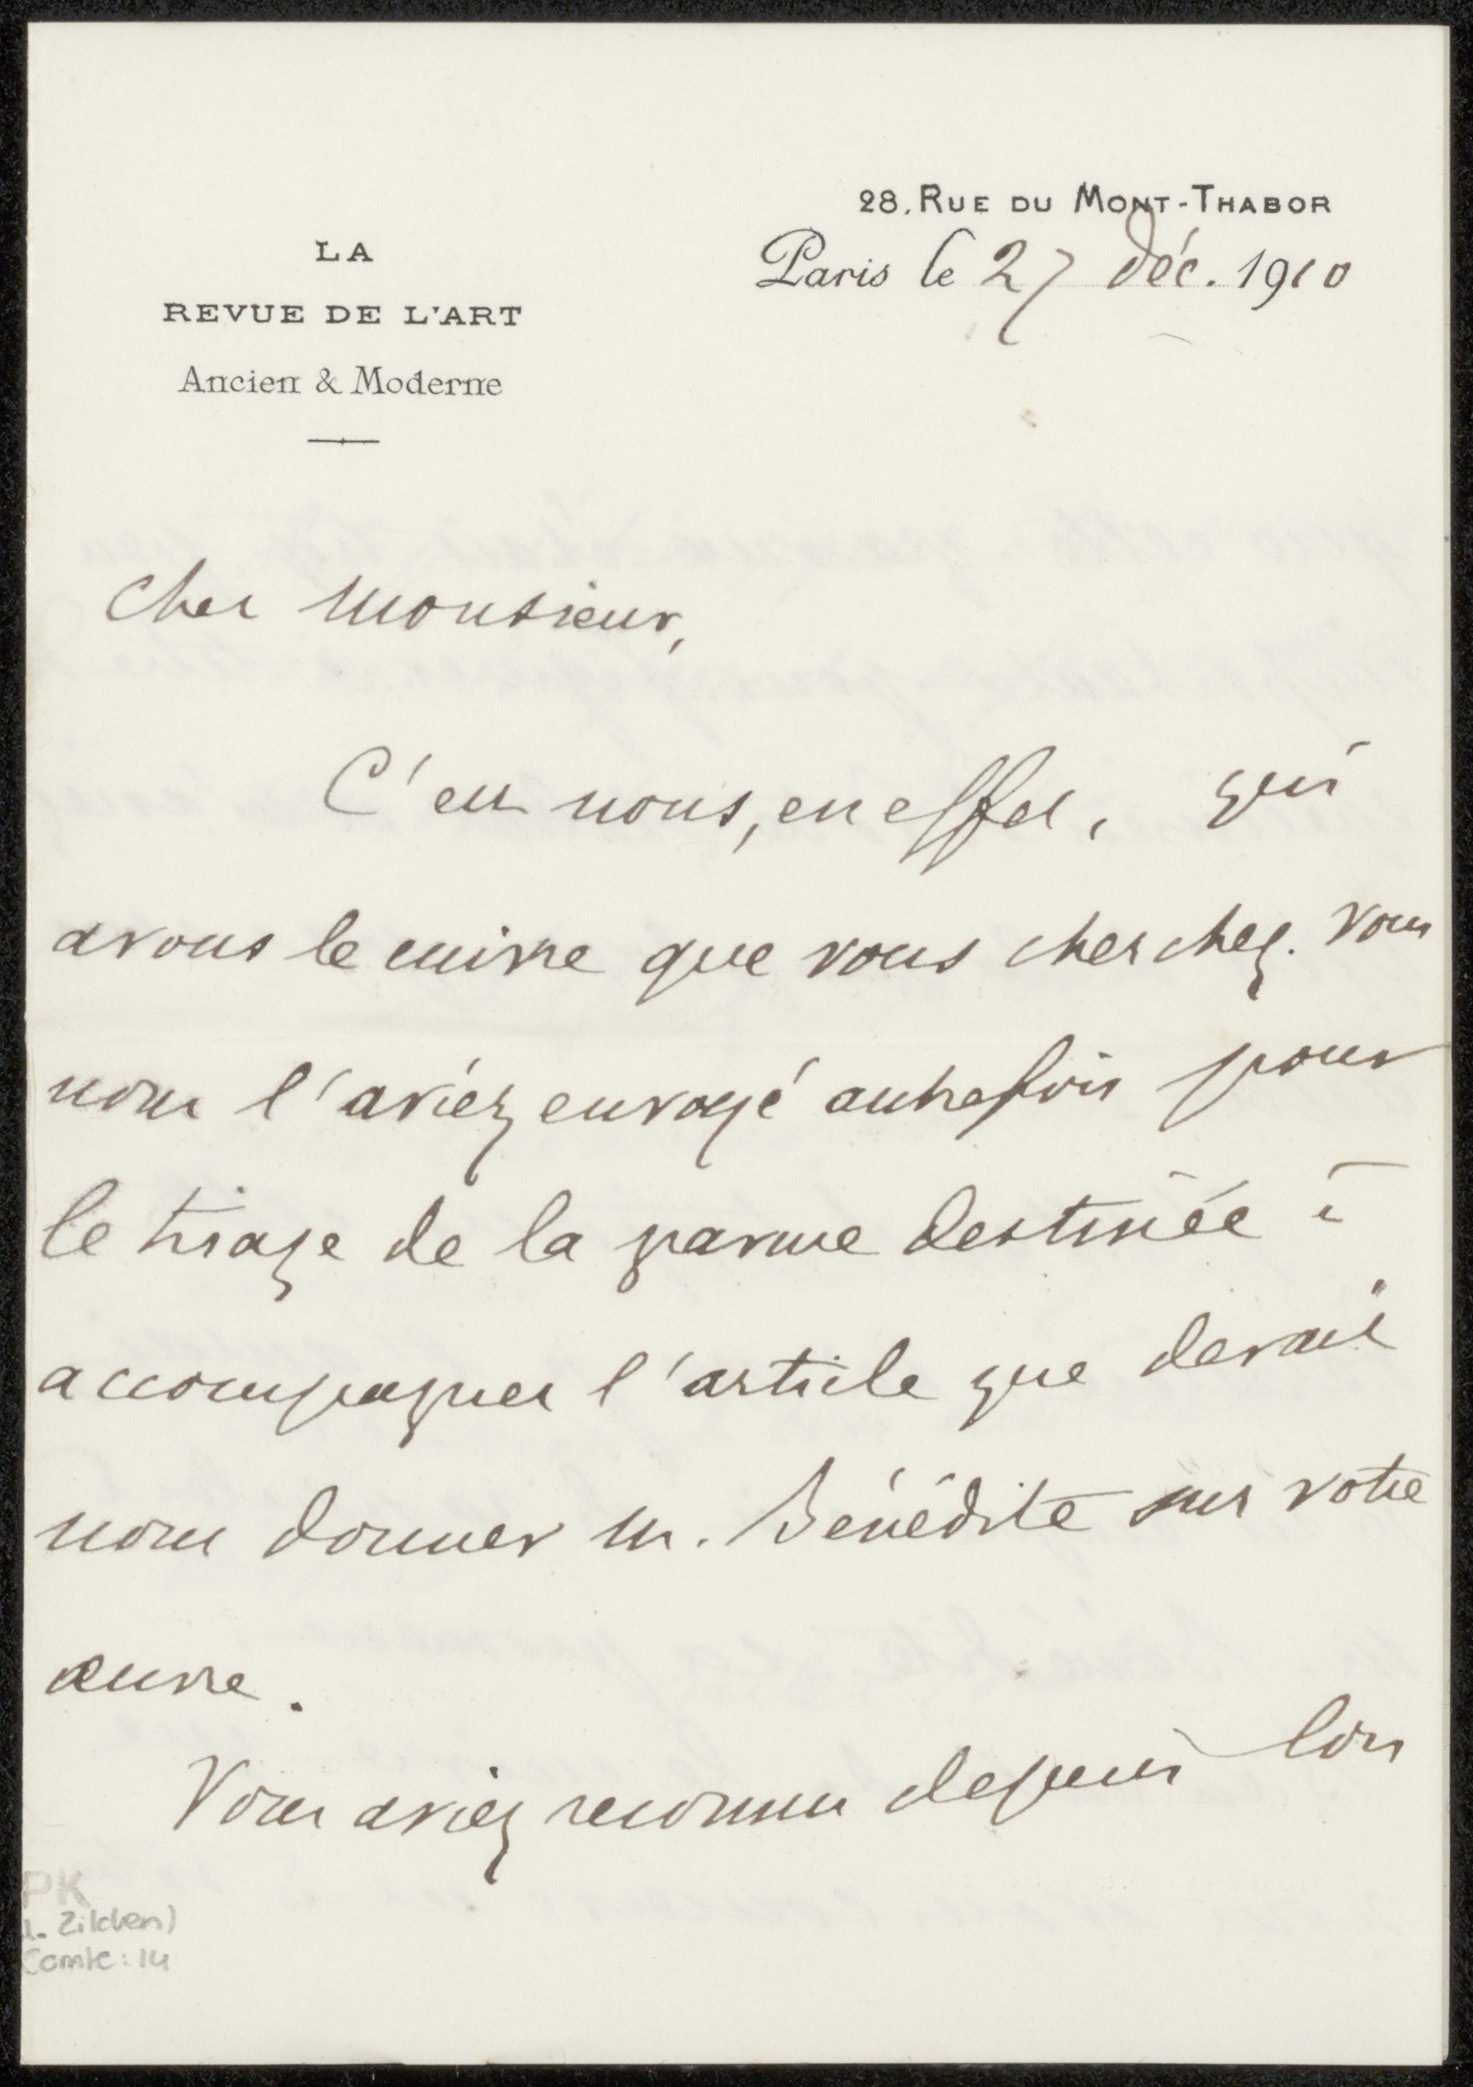 28, RUE DU MONT-THABOR
Paris le 27 Déc. 1910
LA
REVUE DE L'ART
Ancien & Moderne
Cher Monsieur,
C'est nous, en effet, qui
avons le cuivre que vous cherchez. Vous
nous l'aviez envoyé autrefois pour
le tirage de la gravure destinée à
accompagner l'article que devait
nous donner M. Bénédite sur votre
œuvre.
Vous aviez reconnu depuis lors
PK
Zilcken)
Comte: 14